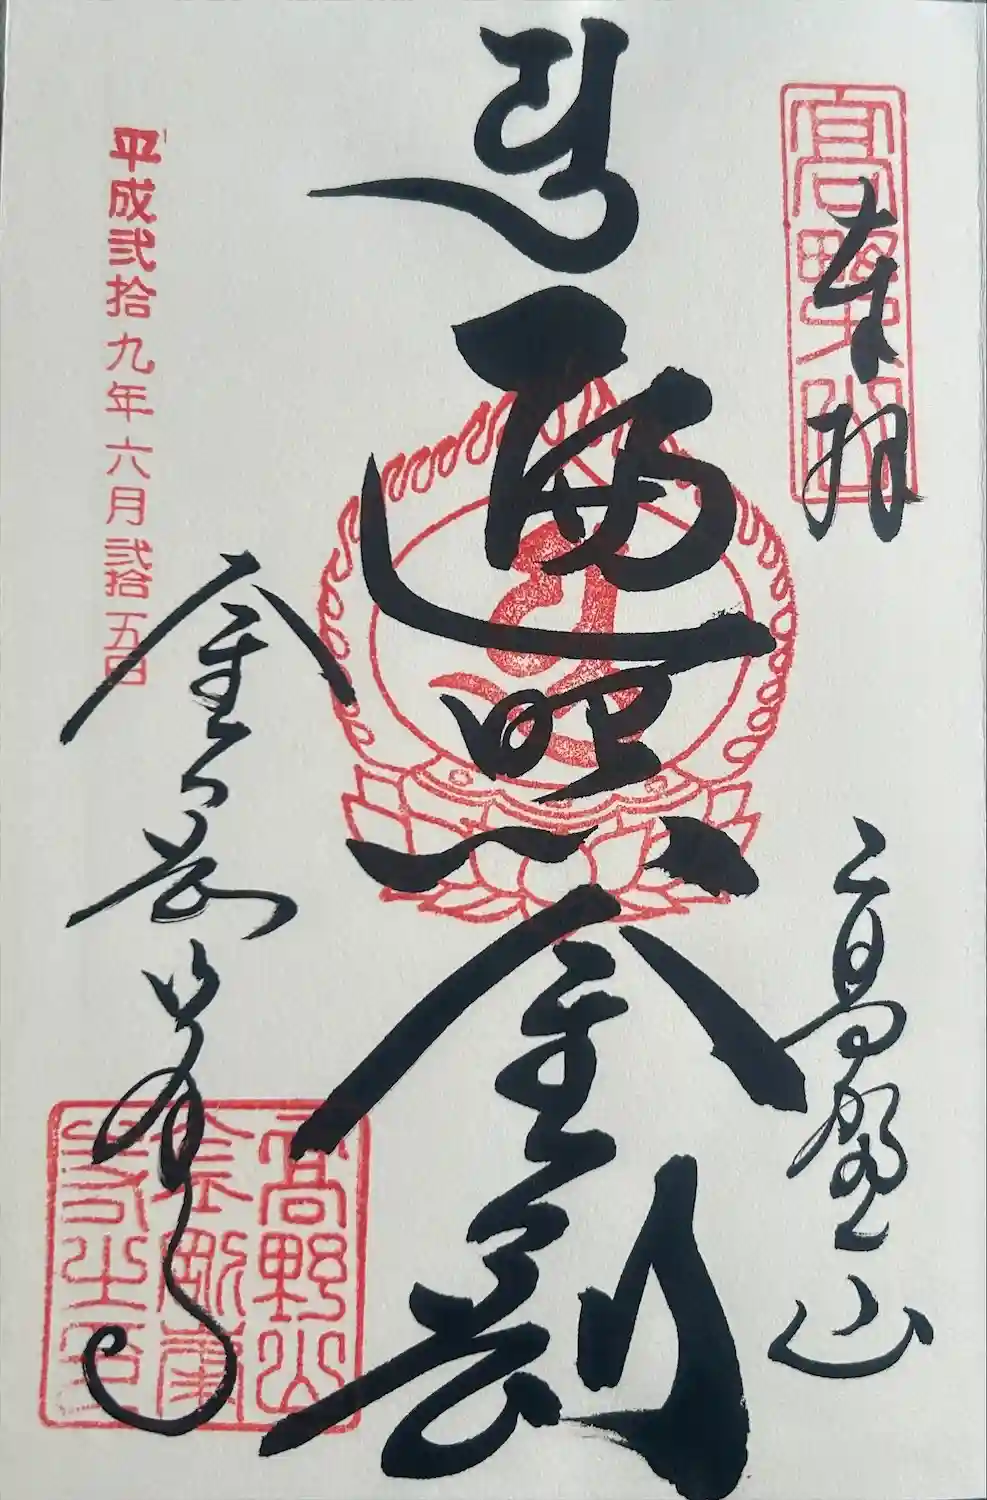 奉拝
高野山
高野山
遍照金剛
平成弐拾九年六月弐拾五日
金剛峯寺
高野山
金剛峯
寺之印